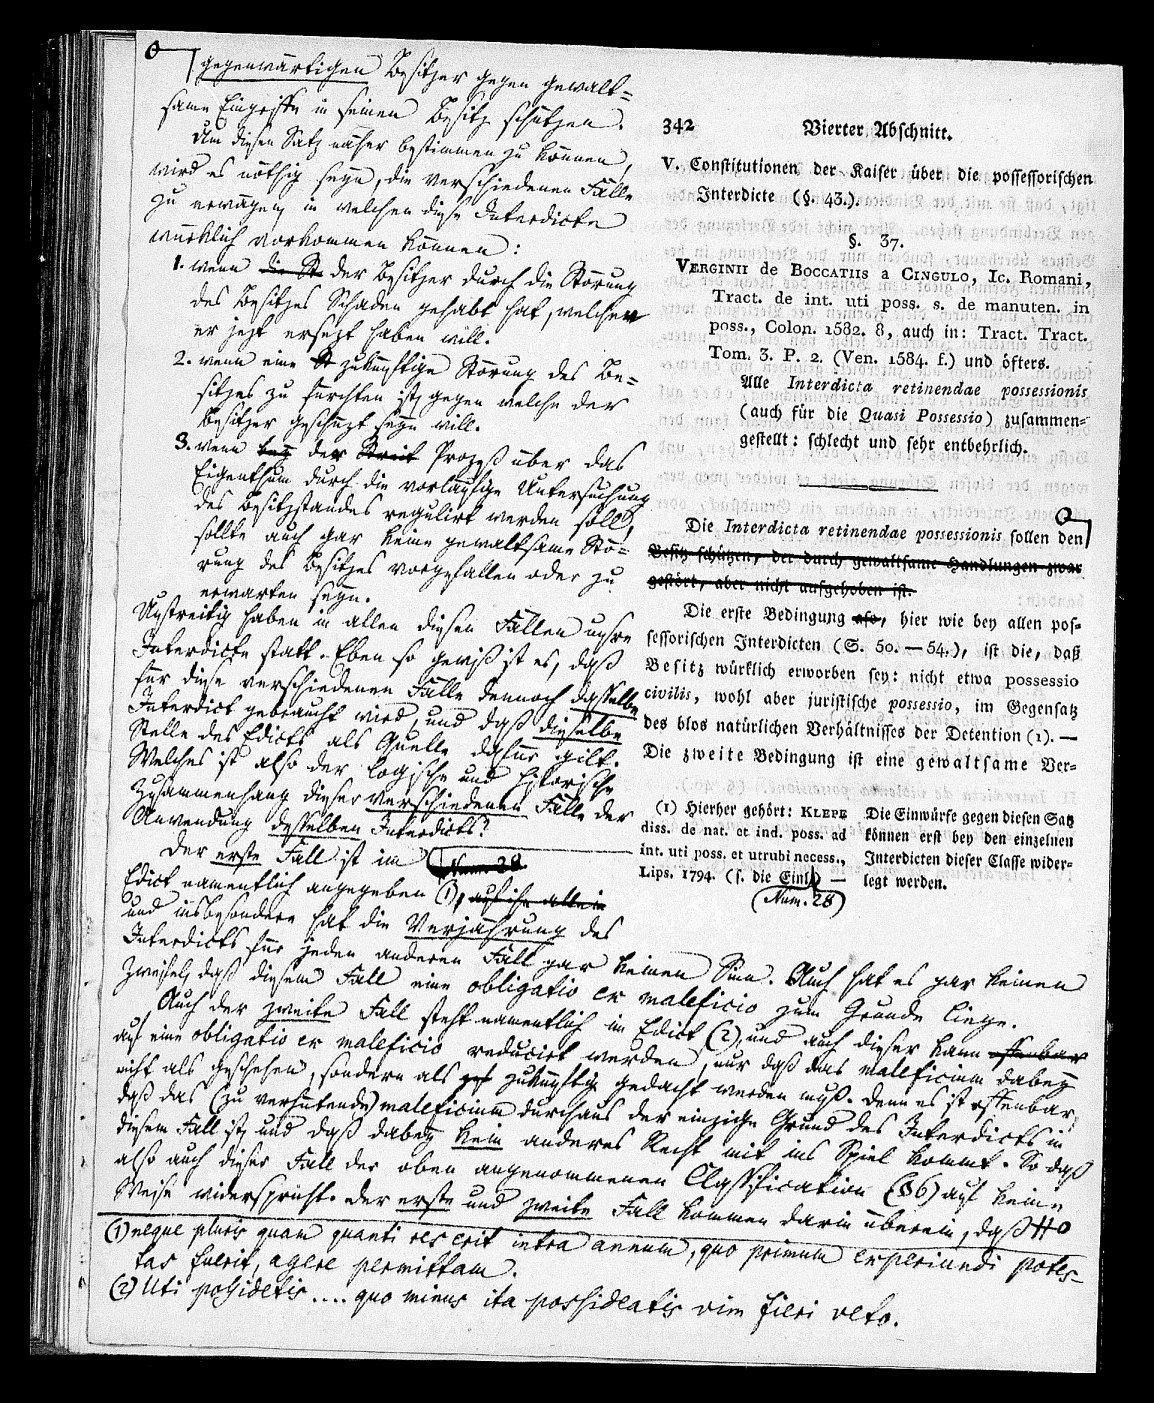 gegenwärtigen Besitzer gegen gewalt=
same Eingriffe in seinen Besitz schützen.
Um diesen Satz näher bestimmen zu können,
wird es nöthig seyn, die verschiedenen Fälle
zu erwägen, in welchen diese Interdicte
würklich vorkommen können:
1. wenn die St der Besitzer durch die Störung
des Besitzes Schaden gehabt hat, welchen
er jezt ersezt haben will.
2. wenn eine St zukünftige Störung des Be=
sitzes zu fürchten ist, gegen welche der
Besitzer geschüzt seyn will.
3. wenn bey der Streit Prozeß über das
Eigenthum durch die vorläufige Untersuchung
des Besitzstandes regulirt werden soll,
sollte auch gar keine gewaltsame Stö=
rung des Besitzes vorgefallen oder zu
erwarten seyn.
Unstreitig haben in allen diesen Fällen unsre
Interdicte statt. Eben so gewiß ist es, daß
für diese verschiedenen Fälle dennoch dasselbe
Interdict gebraucht wird, und daß dieselbe
Stelle des Edicts als Quelle dafür gilt.
Welches ist also der logische und historische
Zusammenhang dieser verschiedenen Fälle der
Anwendung desselben Interdicts?
Der erste Fall ist im
Edict namentlich angegeben (1), auf ihn allein
und insbesondere hat die Verjährung des
Interdicts für jeden anderen Fall gar keinen Sinn. Auch hat es gar keinen
Zweifel, daß diesem Fall eine obligatio ex maleficio zum Grunde liege.
Auch der zweite Fall steht namentlich im Edict (2), und auch dieser kann offenbar
auf eine obligatio ex maleficio reducirt werden, nur daß das maleficium dabey
nicht als geschehen, sondern als zukünftig gedacht werden muß. Denn es ist offenbar,
daß das (zu verhütende) maleficium durchaus der einzige Grund des Interdicts in
diesem Fall ist, und daß dabey kein anderes Recht mit ins Spiel kommt. So daß
also auch dieser Fall der oben angenommenen Classification (§6) auf keine
Weise widerspricht. Der erste und zweite Fall kommen darin überein, daß
(1) neque pluris quam quanti res erit intra annum, quo primum experiundi potes=
tas fuerit, agere permittam.
(2) Uti possidetis .... quo minus ita possideatis vim fieri veto.
342 Vierter Abschnitt.
V. Constitutionen der Kaiser über die possessorischen
Interdicte (§. 43.).
§. 37.
VERGINII de BOCCATIIS a CINGULO, Ic. Romani,
Tract. de int. uti poss. s. de manuten. in
poss., Colon. 1582. 8, auch in: Tract. Tract.
Tom. 3. P. 2. (Ven. 1584. f.) und öfters.
Alle Interdicta retinendae possessionis
(auch für die Quasi Possessio) zusammen-
gestellt: schlecht und sehr entbehrlich.
Die Interdicta retinendae possessionis sollen den
Besitz schützen, der durch gewaltsame Handlungen zwar
gestört, aber nicht aufgehoben ist.
Die erste Bedingung also, hier wie bey allen pos-
sessorischen Interdicten (S. 50. — 54.), ist die, daß
Besitz würklich erworben sey: nicht etwa possessio
civilis, wohl aber juristische possessio, im Gegensatz
des blos natürlichen Verhältnisses der Detention (1). —
Die zweite Bedingung ist eine gewaltsame Ver-
(1) Hierher gehört: KLEPE
diss. de nat. et ind. poss. ad
int. uti poss. et utrubi necess.,
Lips. 1794. (s. die Einl.) —
(Num. 28)
Die Einwürfe gegen diesen Satz
können erst bey den einzelnen
Interdicten dieser Classe wider-
legt werden.